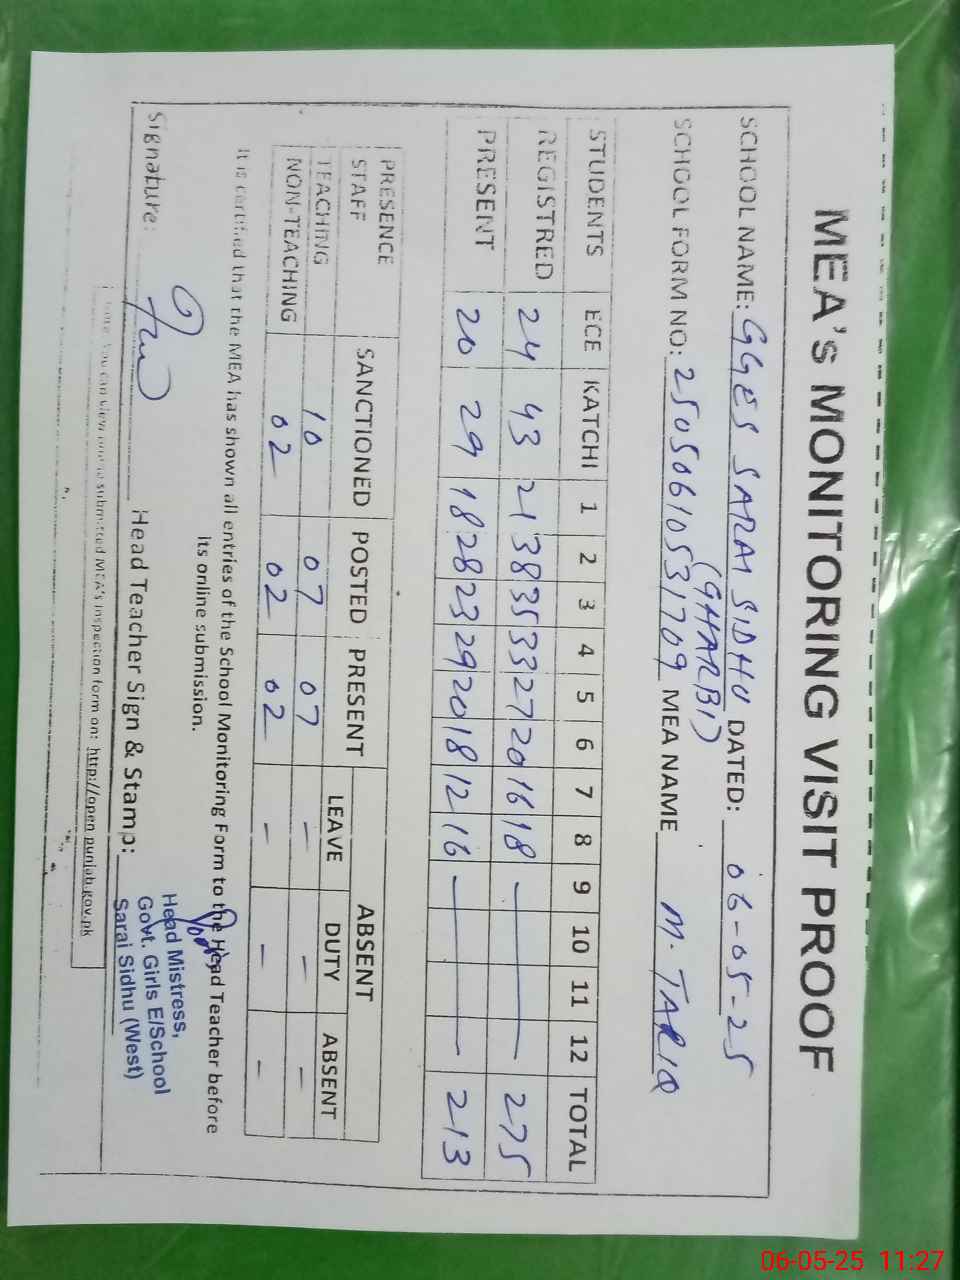 MEA's MONITORING VISIT PROOF
SCHOOL NAME: GGES SARAI SIDHU (GHARBI) DATED: 06-05-25
SCHOOL FORM NO: 25050610531709 MEA NAME M. TARIQ
STUDENTS ECE KATCHI 1 2 3 4 5 6 7 8 9 10 11 12 TOTAL
REGISTRED 24 43 21 38 35 33 27 20 16 18 — 275
PRESENT 20 29 18 28 23 29 20 18 12 16 — 213
PRESENCE SANCTIONED POSTED PRESENT ABSENT
STAFF LEAVE DUTY ABSENT
TEACHING 10 07 07 – – –
NON-TEACHING 02 02 02 – – –
It is certified that the MEA has shown all entries of the School Monitoring Form to the Head Teacher before
its online submission.
Signature: Head Teacher Sign & Stamp:
Head Mistress,
Govt. Girls E/School
Sarai Sidhu (West)
You can view online submitted MEA's inspection form on: http://open.punjab.gov.pk
06-05-25 11:27